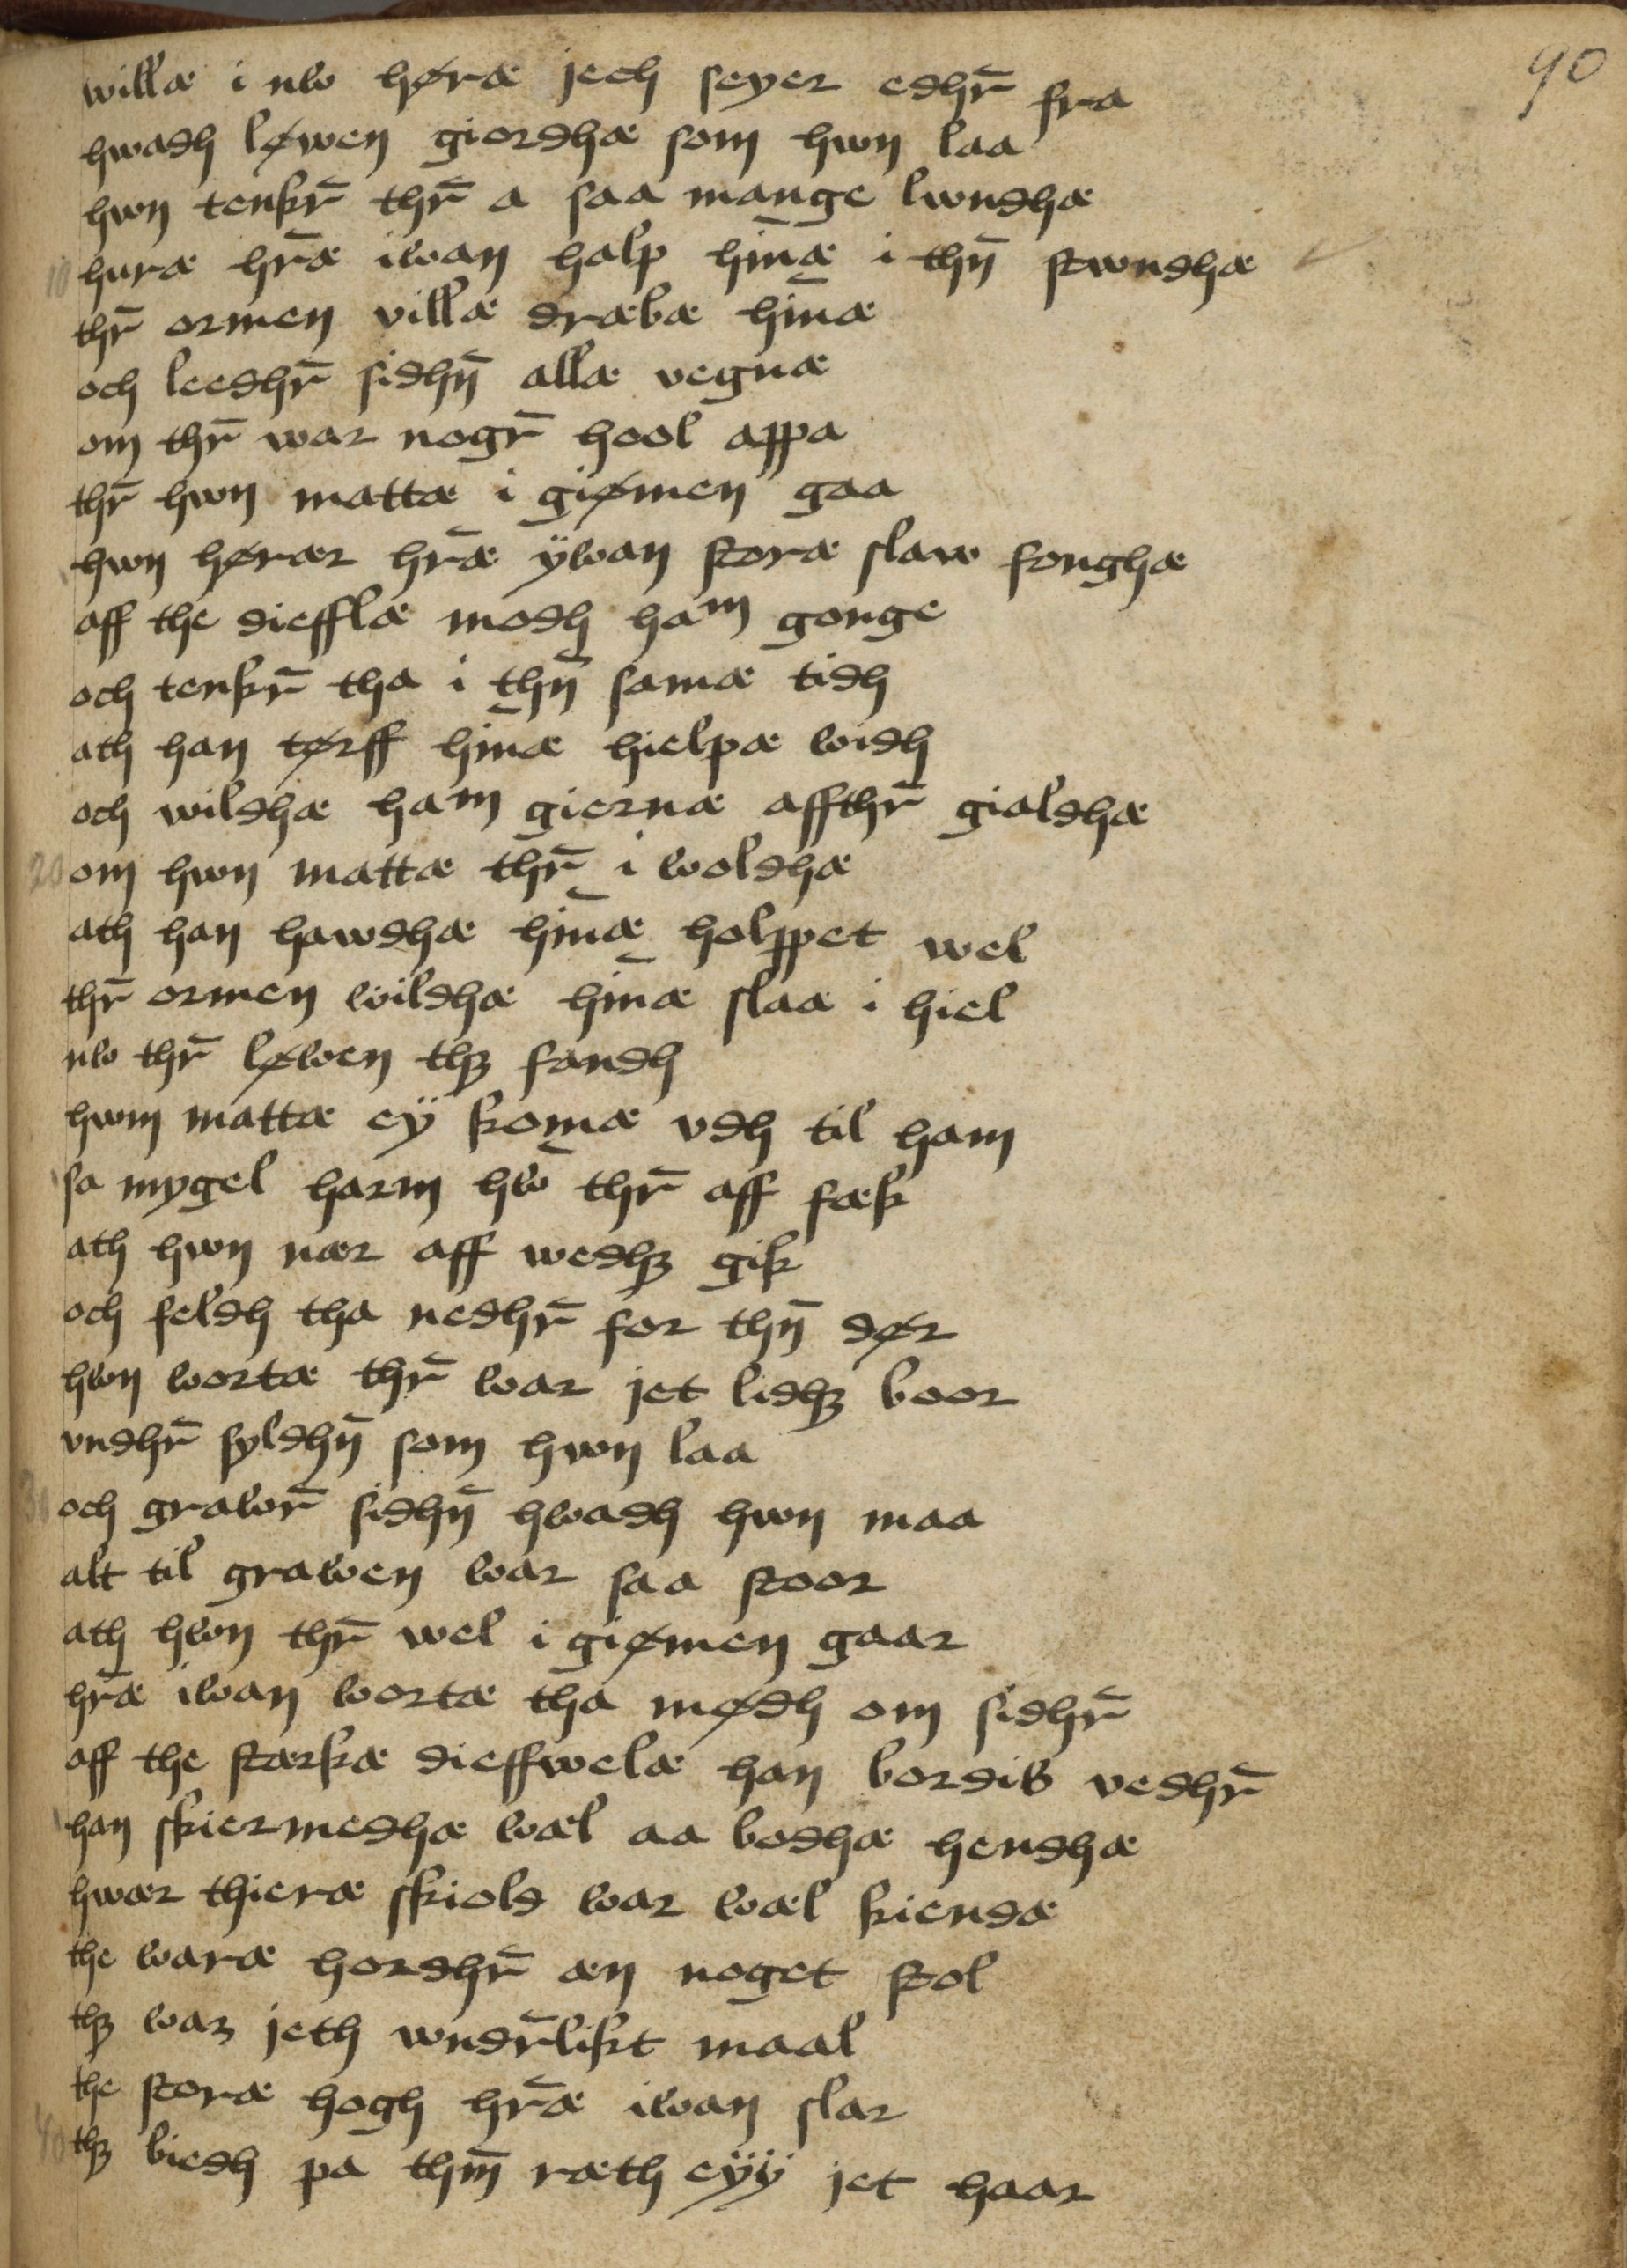 90
willæ i nw høræ jech seyer edhr̄ fra
hwadh løwen giordhæ som hwn laa
hwn tenkr̄ thr̄ a saa mange lwndhæ
10 huræ hr̄æ iwan halp hīnæ i thn̄ stwndhæ
thr̄ ormen villæ dræbæ hīnæ
och leedhr̄ sidhn̄ allæ vegnæ
om thr̄ war nogr̄ hool appa
thr̄ hwn mattæ i giømen gaa
hwn hørær hr̄æ ÿwan storæ slaw fonghæ
aff the diefflæ modh ham gonge
och tenkr̄ tha i thn̄ samæ tidh
ath han tørff hīnæ hielpæ widh
och wildhæ ham giernæ affthr̄ gialdhæ
20 om hwn mattæ thr̄ i woldhæ
ath han hawdhæ hīnæ holppet wel
thr̄ ormen wildhæ hīnæ slaæ i hiel
nw thr̄ løwen thꝫ fandh
hwn mattæ eÿ komæ vdh til ham
sa mygel harm hw̄ thr̄ aff fæk
ath hwn nær aff wedhꝫ gik
och feldh tha nedhr̄ for thn̄ dør
hwn wortæ thr̄ war jet lidhꝫ boor
vndhr̄ syldhn̄ som hwn laa
30 och grawr̄ sidhn̄ hwadh hwn maa
alt til grawen war saa stoor
ath hwn thr̄ wel i giømen gaar
hr̄æ iwan wortæ tha mødh om sidhr̄
aff the stærkæ dieffwelæ han bordis vedhr̄
han skiermedhæ wæl aa bodhæ hendhæ
hwær thieræ skiold war wæl kiendæ
the waræ hordhr̄ æn noget stol
thꝫ war jeth wndr̄likt maal
the storæ hogh hr̄æ iwan slar
40 thꝫ biedh pa thm̄ ræth eÿÿ jet haar